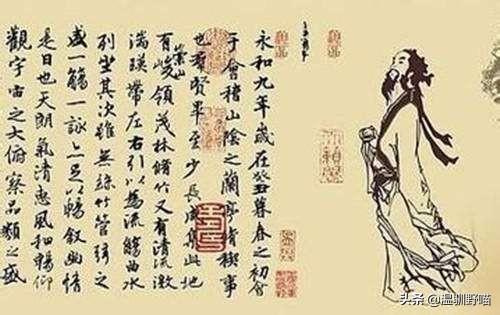 永和九年歲在癸丑暮春之初會
于會稽山陰之蘭亭脩禊事
也羣賢畢至少長咸集此地
有崇山峻領茂林脩竹又有清流激
湍暎帶左右引以為流觴曲水
列坐其次雖無絲竹管弦之
盛一觴一詠亦足以暢敘幽情
是日也天朗氣清惠風和暢仰
觀宇宙之大俯察品類之盛
头条@溫馴野喵